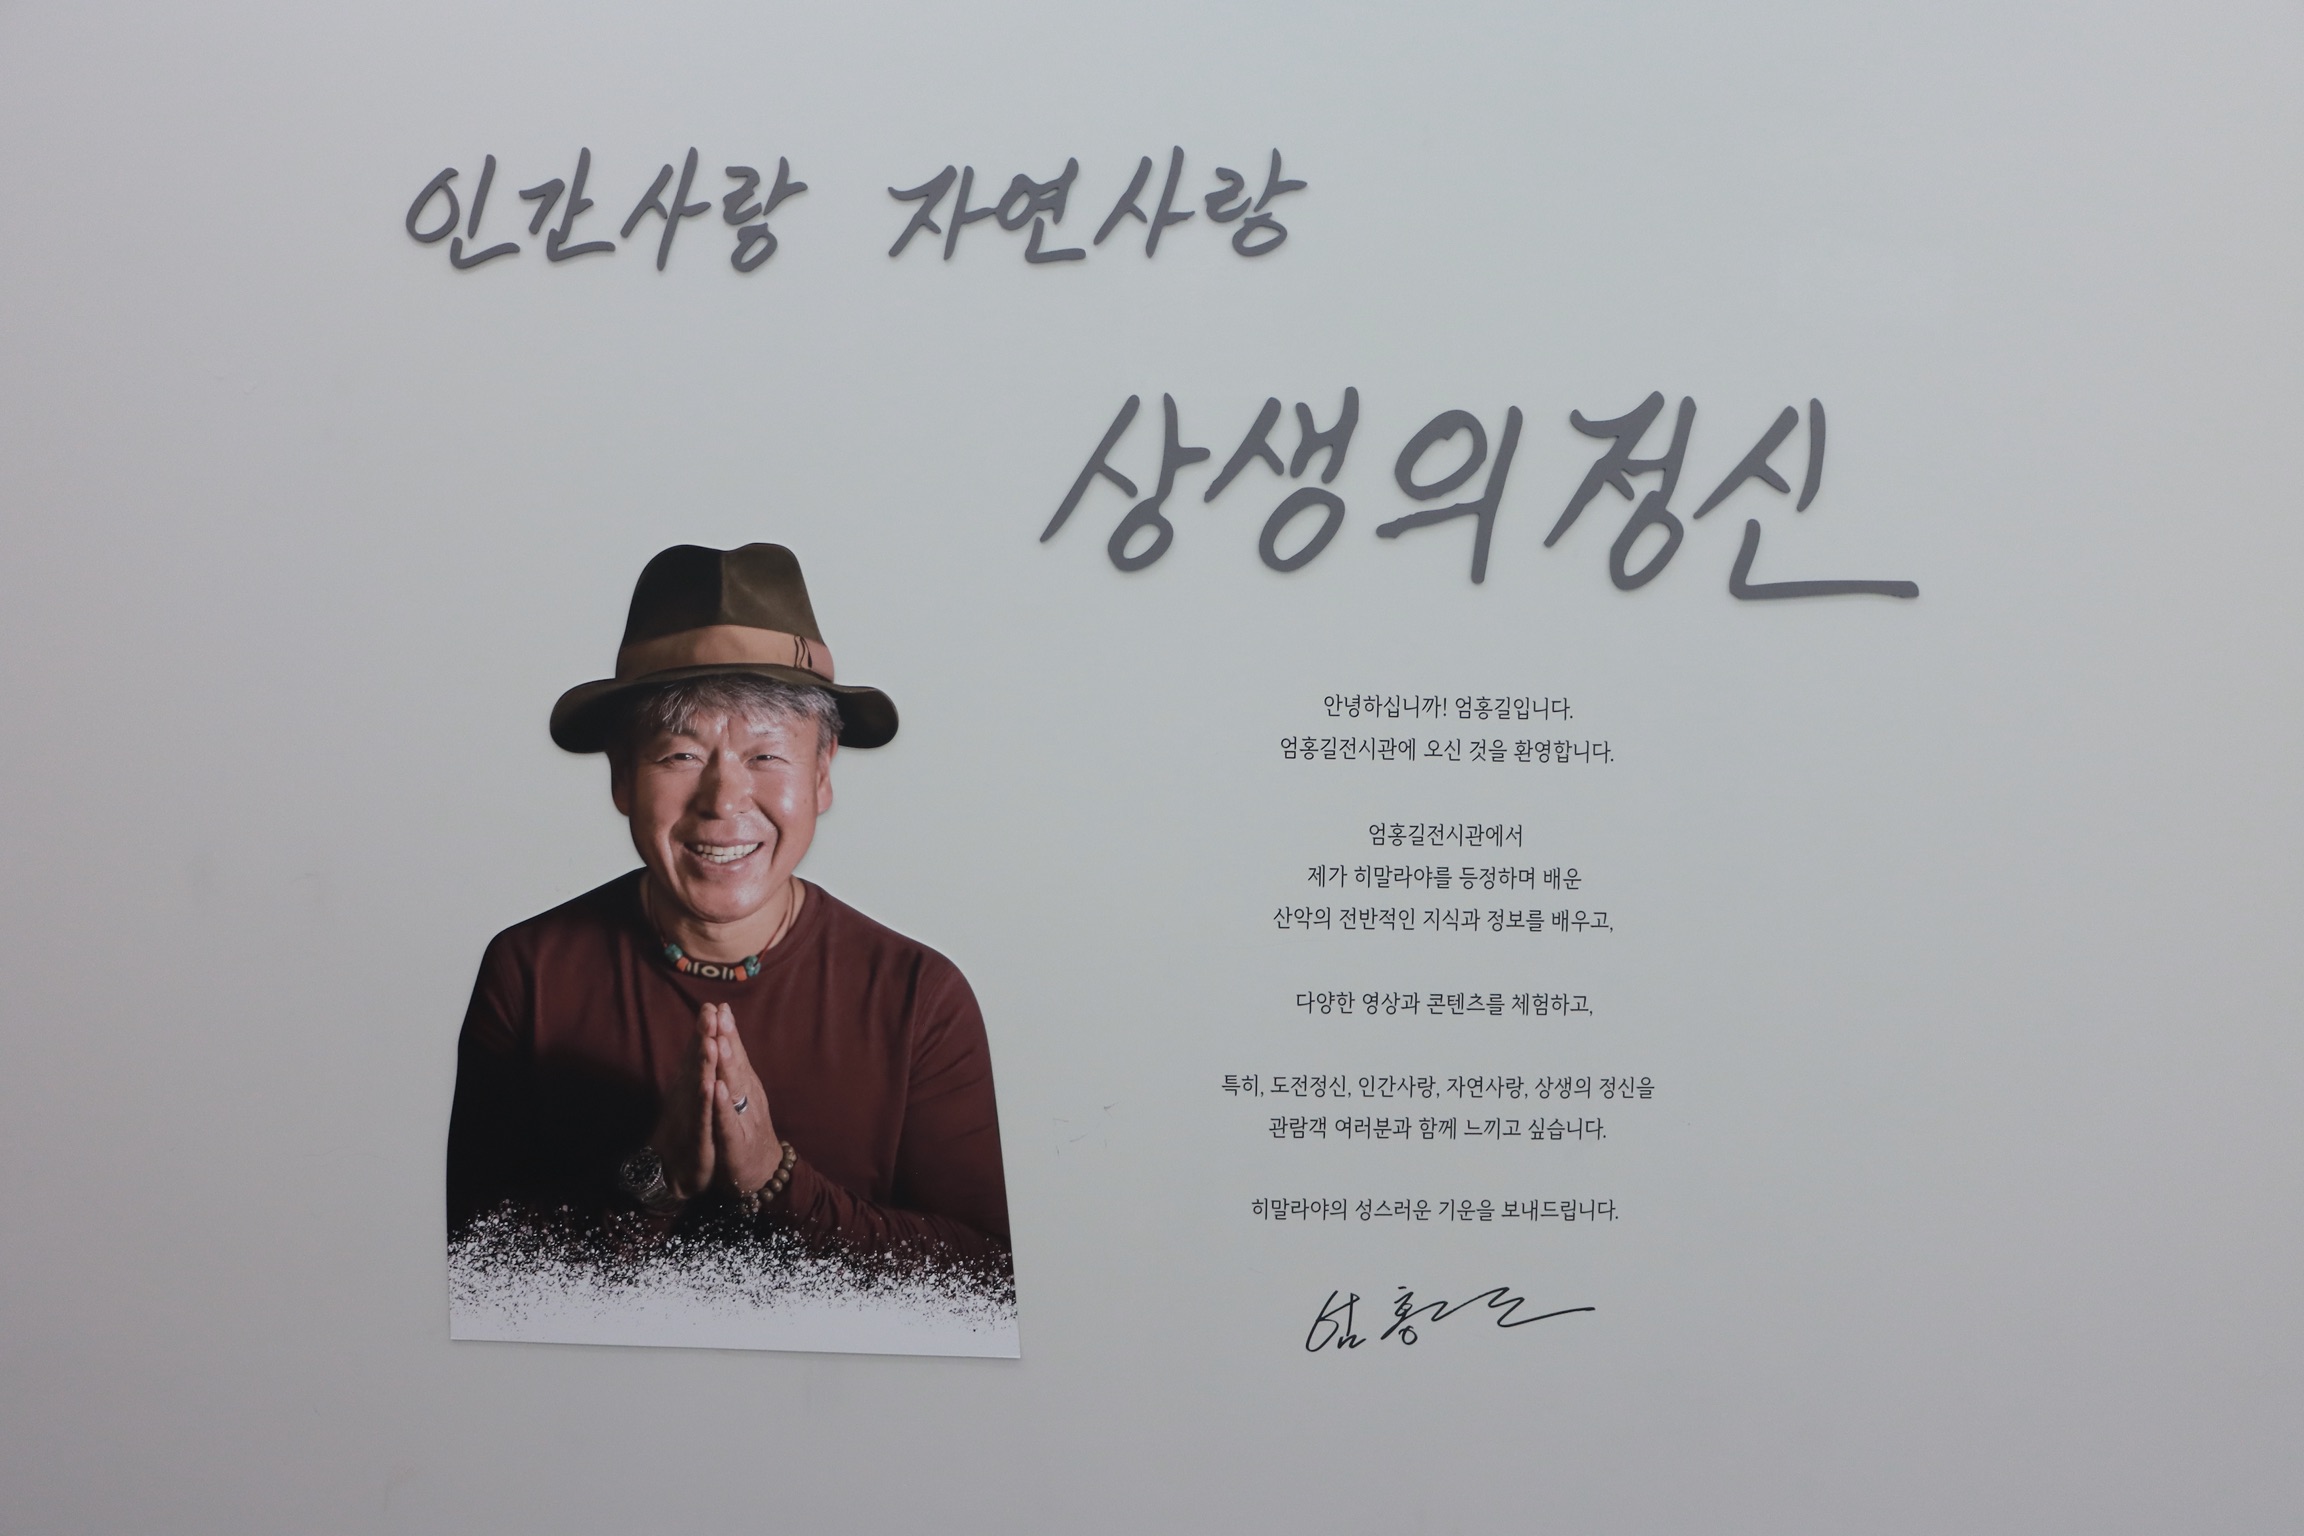 인간사랑 자연사랑
상생의정신
안녕하십니까! 엄홍길입니다.
엄홍길전시관에 오신 것을 환영합니다.
엄홍길전시관에서
제가 히말라야를 등정하며 배운
산악의 전반적인 지식과 정보를 배우고,
다양한 영상과 콘텐츠를 체험하고,
특히, 도전정신, 인간사랑, 자연사랑, 상생의 정신을
관람객 여러분과 함께 느끼고 싶습니다.
히말라야의 성스러운 기운을 보내드립니다.
엄홍길